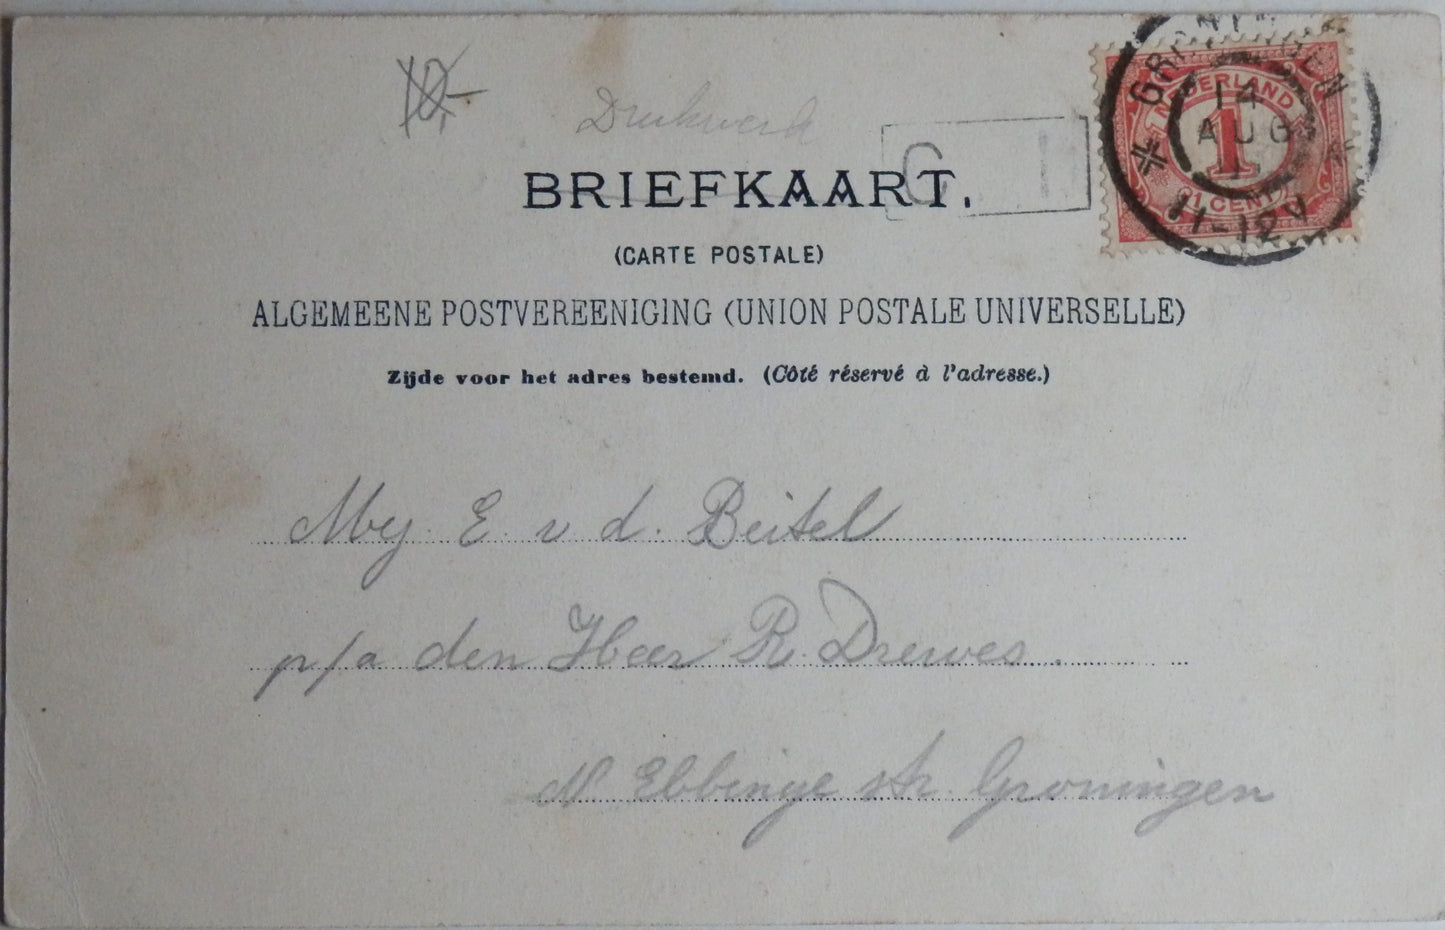 10,-
Drukwerk
BRIEFKAART.
(CARTE POSTALE)
ALGEMEENE POSTVEREENIGING (UNION POSTALE UNIVERSELLE)
Zijde voor het adres bestemd. (Côté réservé à l'adresse.)
GRONINGEN
14
AUG
11-12V
NEDERLAND
1
1 CENT
Mej. E v d. Beitel
p/a den Heer R. Drewes.
N Ebbinge str. Groningen